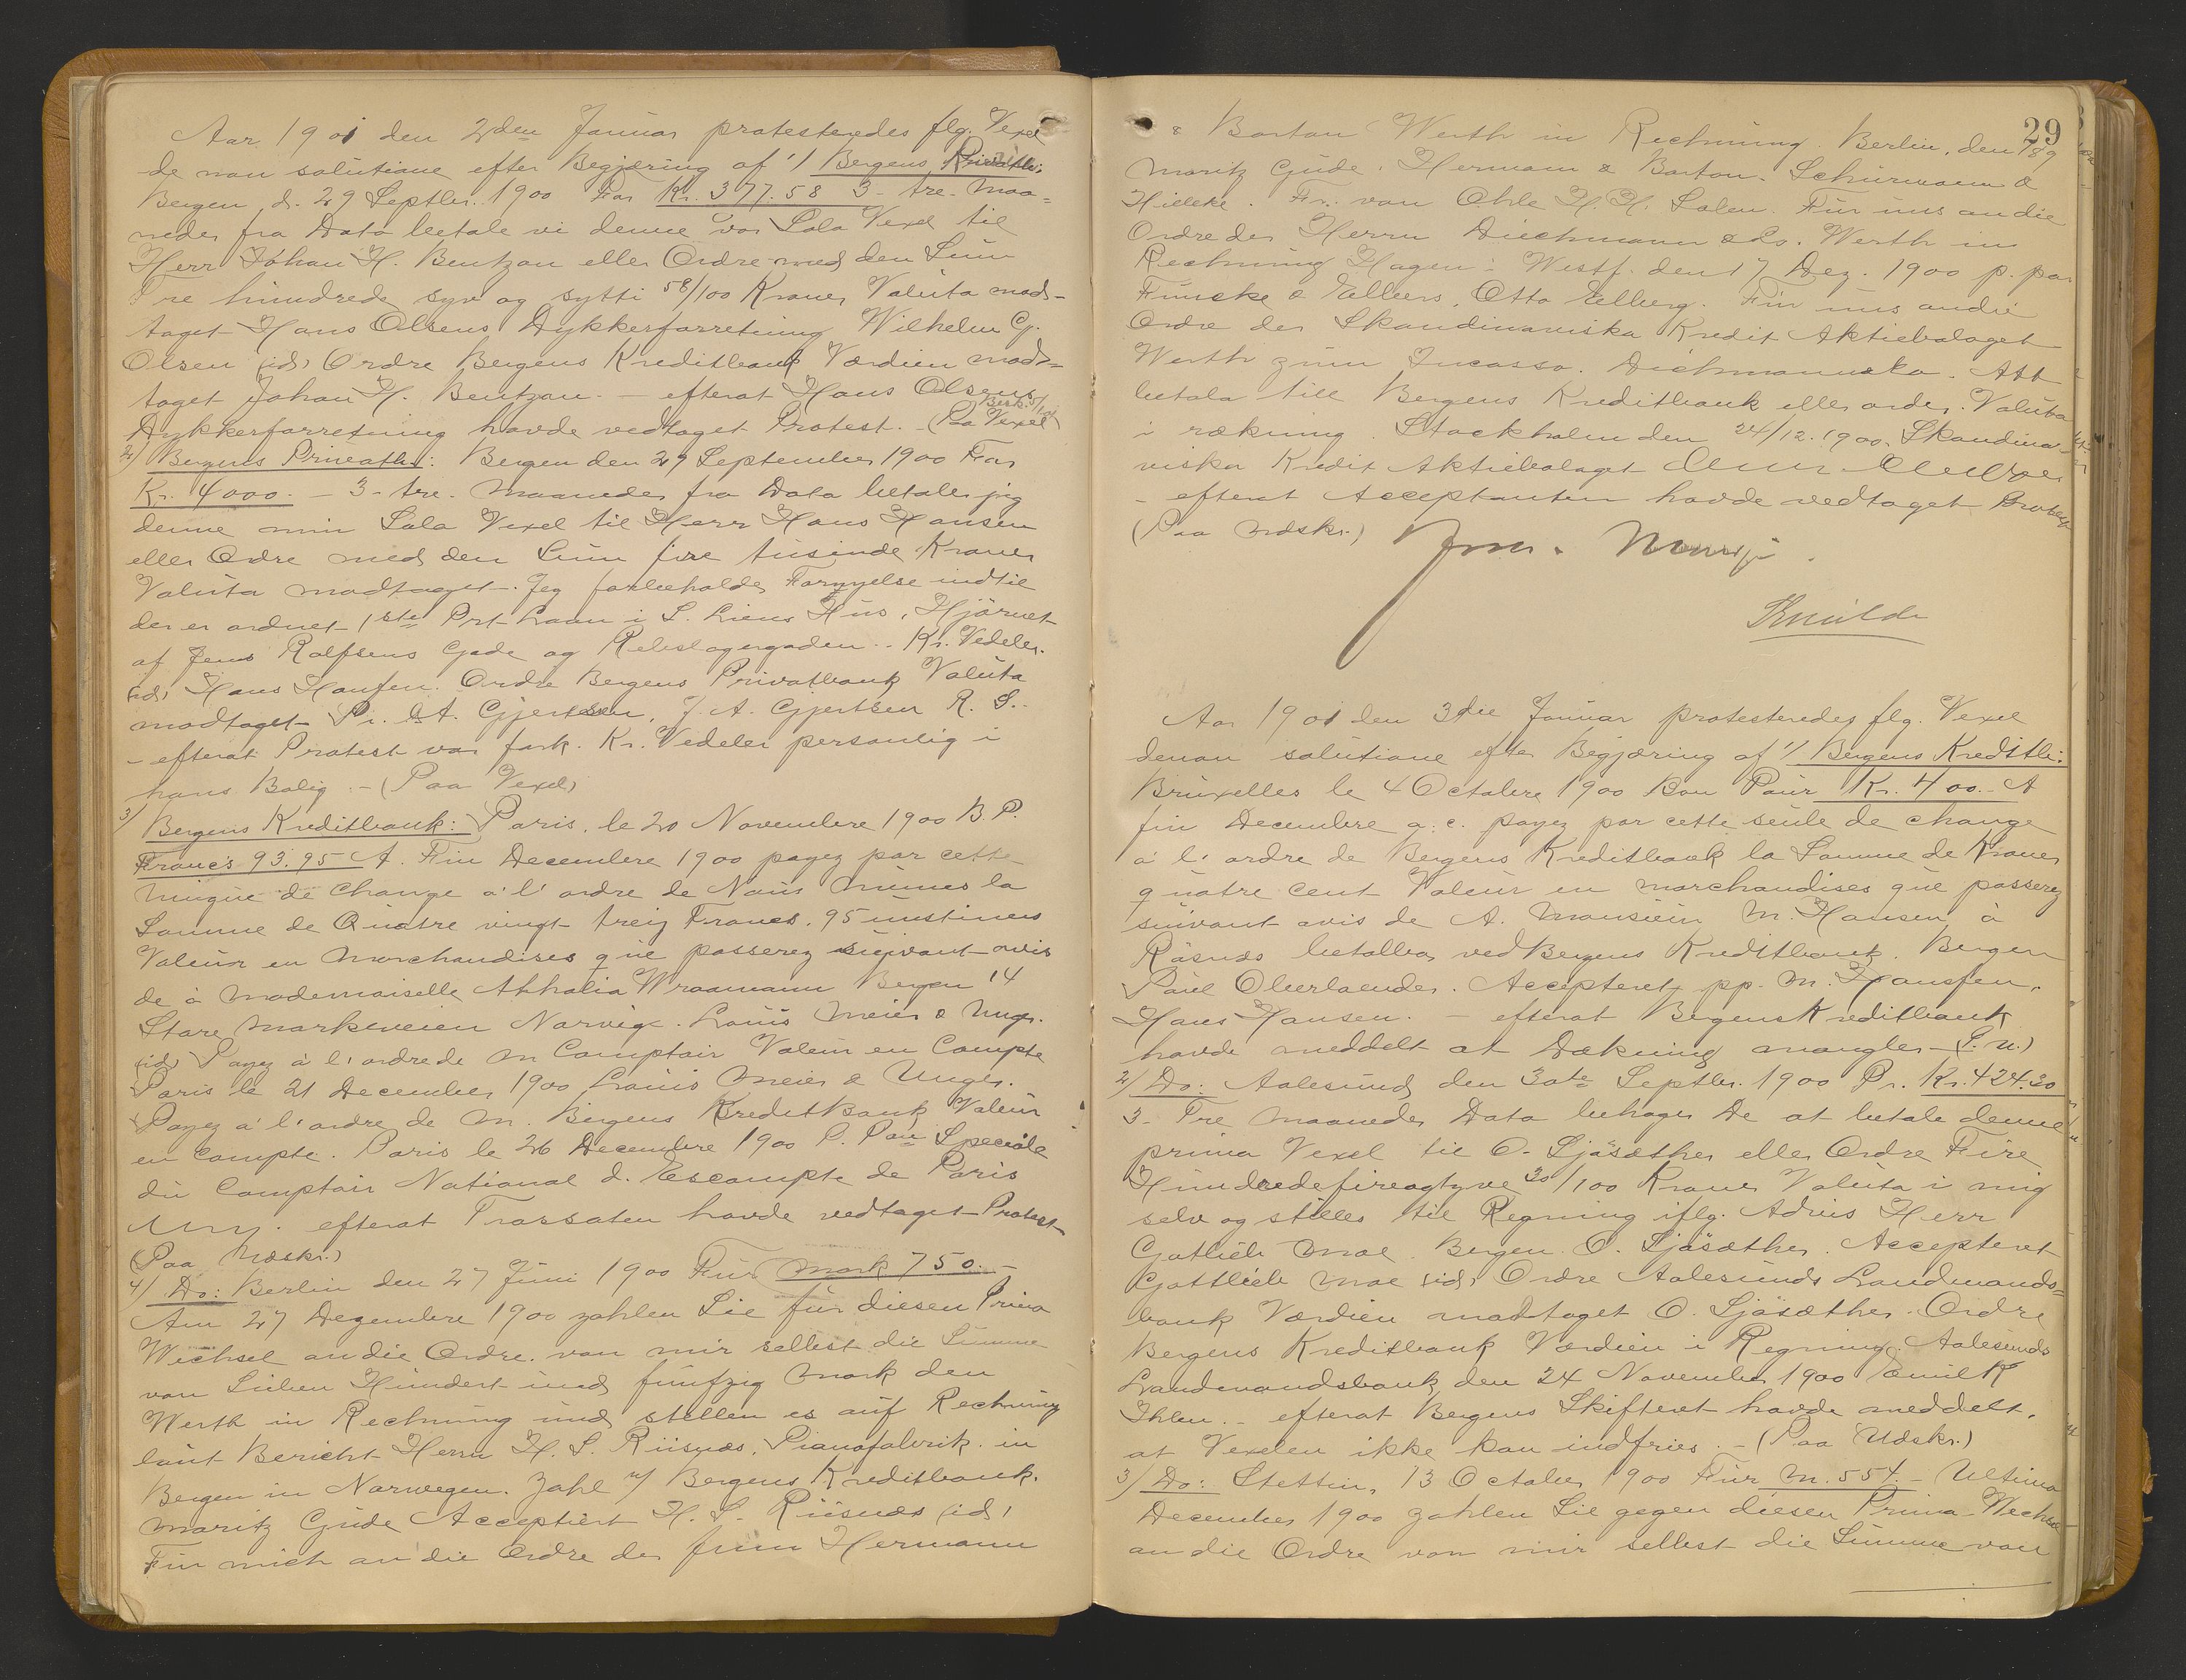 Aar 1901 den 2den Januar protesteredes flg. Vexel
de non solutione efter Begjæring af 1/ Bergens Privatb:
Bergen d. 29 Septbr. 1900 For Kr. 377.58 3 - tre - Maa-
neder fra Dato betale vi denne vor Sola Vexel til
Herr Johan H. Bentzon eller Ordre med den Sum
Tre hundrede syv og sytti 58/100 Kroner Valuta mod-
taget Hans Olsens Dykkerforretning Wilhelm G.
Olsen (id) Ordre Bergens Kreditbank Værdien mod-
taget Johan H. Bentzon. - efterat Hans Olsens
Dykkerforretning havde vedtaget Protest. - (Paa Vexel)
2/ Bergens Privatb: Bergen den 29 September 1900 For
Kr. 4000. - 3 - tre - Maaneder fra Dato betaler jeg
denne min Sola Vexel til Herr Hans Hansen
eller Ordre med den Sum fire tusinde Kroner
Valuta modtaget. Jeg forbeholder Fornyelse indtil
der er ordnet 1ste Prt Laan i S. Liens Hus, Hjörnet
af Jens Rolfsens Gade og Rebslagergaden.. Kr. Vedeler.
(id) Hans Hansen. Ordre Bergens Privatbank Valuta
modtaget Pr. A. Gjertsen, J. A. Gjertsen R. S..
- efterat Protest var fork. Kr. Vedeler personlig i
hans Bolig. - (Paa Vexel)
3/ Bergens Kreditbank: Paris, le 20 Novembre 1900 B. P.
Francs 93.95 A. Fin Decembre 1900 payez par cette
unique de Change a l'ordre de Nous mêmes la
Somme de Quatre vingt treiz Francs. 95
Valeur en Marchandises que passerez suivant avis
de à Mademoiselle Athalia Wraamann Bergen 14
Store Markeveien Norvège. Louis Meier & Unger.
(id) Payez à l'ordre de M Comptoir Valeur en Compte
Paris le 21 December 1900 Louis Meier & Unger.
Payez a l'ordre de M. Bergens Kreditbank Valeur
en Compte. Paris le 26 Decembre 1900 P. Pon Speciale
du Comptoir National d. Escompte de Paris
efterat Trassaten havde vedtaget Protest
(Paa Udskr.)
4/ Do: Berlin den 27 Juni 1900 Für Mark 750. -
Am 27 Dezembre 1900 zahlen Sie für diesen Prima
Wechsel an die Ordre von mir selbst die Summe
von Sieben Hundert und fünfzig Mark den
Werth in Rechnung und stellen es auf Rechnung
laut Bericht Herrn H. S. Riisnæs, Pianofabrik. in
Bergen in Norwegen. Zahl n/ Bergens Kreditbank.
Moritz Gude Acceptiert H. S. Riisnæs (id)
Für mich an die Ordre der firm Hermann
29
& Barton Werth in Rechnung. Berlin, den 18/9
Moritz Gude. Hermann & Barton. Schürmann &
Hieleke. Fr. von Ohle H. H. Solen. Für uns an die
Ordre der Herrn Diechmann & Co. Werth in
Rechnung Hagen i Westf. den 17 Dez. 1900 p. pa
Funcke & Elbers, Otto Elberg. Für uns an die
Ordre der Skandinaviska Kredit Aktiebolaget
Werth zum Incasso. Dichmann & Co. Att
betala till Bergens Kreditbank eller order. Valuta
i räkning. Stockholm den 24/12.1900, Skandina-
viska Kredit Aktiebolaget
- efterat Acceptanten havde vedtaget Protest
(Paa Udskr.)
Aar 1901 den 3die Januar protesteredes flg. Vexel
denon solutione efter Begjæring af 1/ Bergens Kredittb:
Bruxelles le 4 Octobre 1900 Bon Pour Kr. 400. - A
fin Decembre a. c. payez par cette seule de change
a l'ordre de Bergens Kreditbank la Somme de Kroner
quatre cent Valeur en marchandises que passerez
suivant avis de A. Monsieur M. Hansen, à
Råsnæs betalbar ved Bergens Kreditbank. Bergen
Paul Oberlaender. Accepteret pp. M. Hansen,
Hans Hansen. - efterat Bergens Kreditbank
havde meddelt at Dækning mangler - (P. U.)
2/ Do: Aalesund, den 30te Septbr. 1900 Pr. Kr. 424.30
3 - Tre maaneder Dato behager De at betale denne
prima Vexel til O. Sjåsæther eller Ordre Fire
Hundrede fireogtyve 30/100 Kroner Valuta i mig
selv og stilles til Regning iflg. Advis Herr
Gotlieb Moe. Bergen. O. Sjåsæther. Accepteret
Gottlieb Moe (id) Ordre Aalesunds Landmands-
bank Værdien modtaget O. Sjåsæther. Ordre
Bergens Kreditbank Værdien i Regning. Aalesunds
Landmandsbank, den 24 November 1900 Emil K
Ihlen. - efterat Bergens Skifteret havde meddelt,
at Vexelen ikke kan indfries. - (Paa Udskr.)
3/ Do: Stettin, 13 October 1900 Für M. 554. - Ultimo
December 1900 zahlen Sie gegen diesen Prima-Wechsel
an die Ordre von mir selbst die Summe von